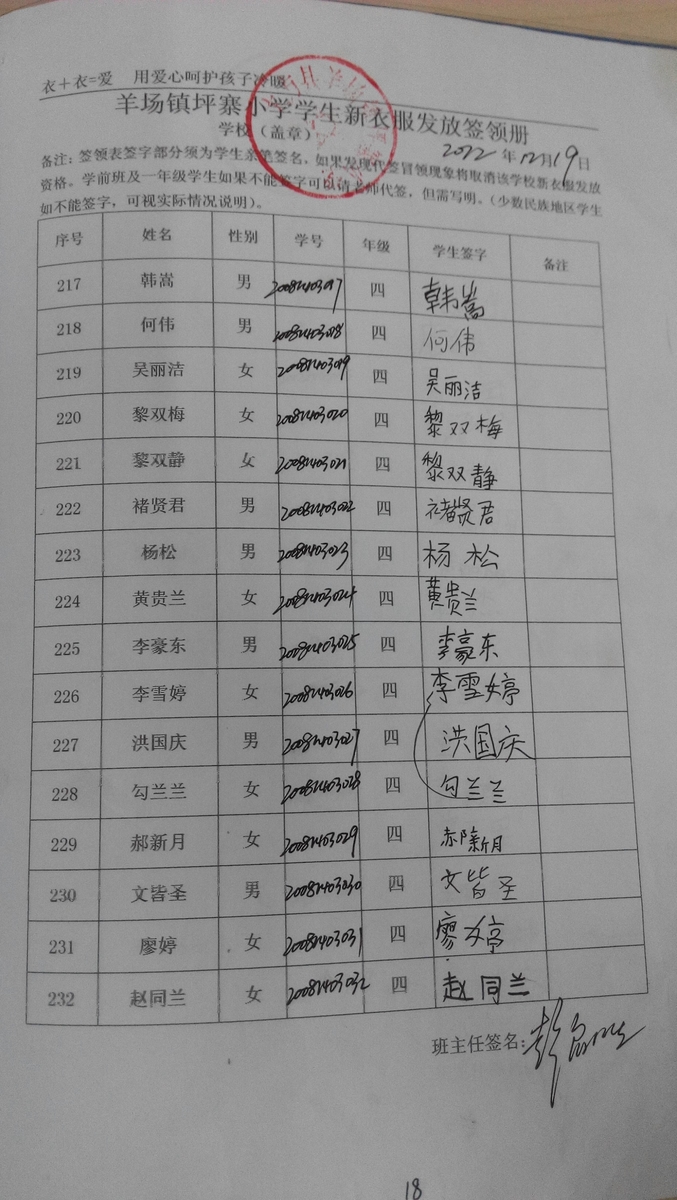 衣+衣=爱 用爱心呵护孩子冷暖
羊场镇坪寨小学学生新衣服发放签领册
学校（盖章）
2022年12月19日
备注：签领表签字部分须为学生亲笔签名，如果发现代签冒领现象将取消该学校新衣服发放
资格。学前班及一年级学生如果不能签字可以请老师代签，但需写明。（少数民族地区学生
如不能签字，可视实际情况说明）。
序号 姓名 性别 学号 年级 学生签字 备注
217 韩嵩 男 20081403017 四 韩嵩
218 何伟 男 20081403018 四 何伟
219 吴丽洁 女 20081403019 四 吴丽洁
220 黎双梅 女 20081403020 四 黎双梅
221 黎双静 女 20081403021 四 黎双静
222 褚贤君 男 20081403022 四 褚贤君
223 杨松 男 20081403023 四 杨松
224 黄贵兰 女 20081403024 四 黄贵兰
225 李豪东 男 20081403025 四 李豪东
226 李雪婷 女 20081403026 四 李雪婷
227 洪国庆 男 20081403027 四 洪国庆
228 勾兰兰 女 20081403028 四 勾兰兰
229 郝新月 女 20081403029 四 郝新月
230 文皆圣 男 20081403030 四 文皆圣
231 廖婷 女 20081403031 四 廖婷
232 赵同兰 女 20081403032 四 赵同兰
班主任签名：
18